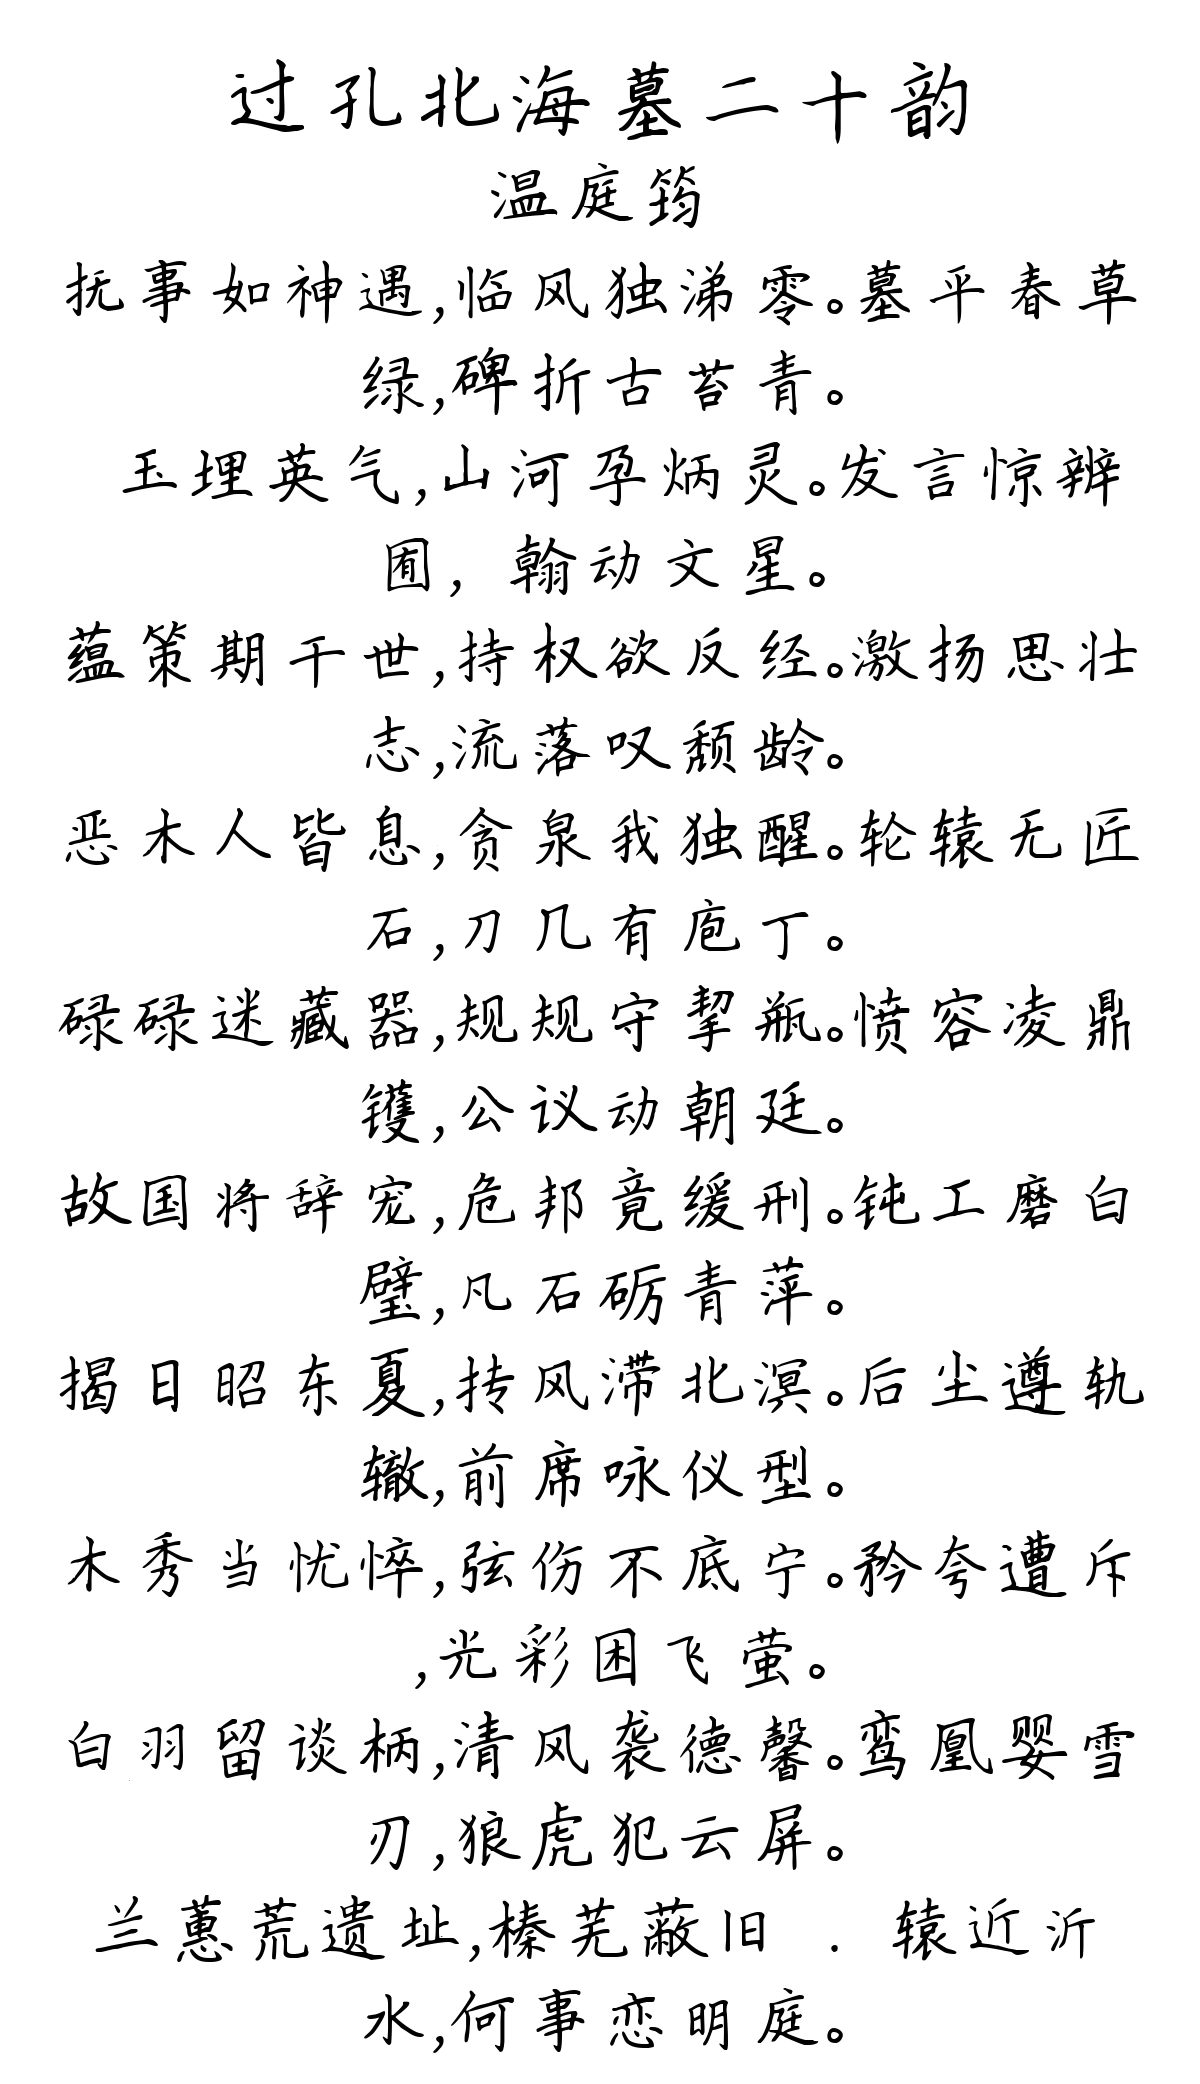 过孔北海墓二十韵
温庭筠
抚事如神遇,临风独涕零。墓平春草
绿,碑折古苔青。
玉埋英气,山河孕炳灵。发言惊辨
囿,翰动文星。
蕴策期干世,持权欲反经。激扬思壮
志,流落叹颓龄。
恶木人皆息,贪泉我独醒。轮辕无匠
石,刀几有庖丁。
碌碌迷藏器,规规守挈瓶。愤容凌鼎
镬,公议动朝廷。
故国将辞宠,危邦竟缓刑。钝工磨白
璧,凡石砺青萍。
揭日昭东夏,抟风滞北溟。后尘遵轨
辙,前席咏仪型。
木秀当忧悴,弦伤不底宁。矜夸遭斥
,光彩困飞萤。
白羽留谈柄,清风袭德馨。鸾凰婴雪
刃,狼虎犯云屏。
兰蕙荒遗址,榛芜蔽旧 . 辕近沂
水,何事恋明庭。